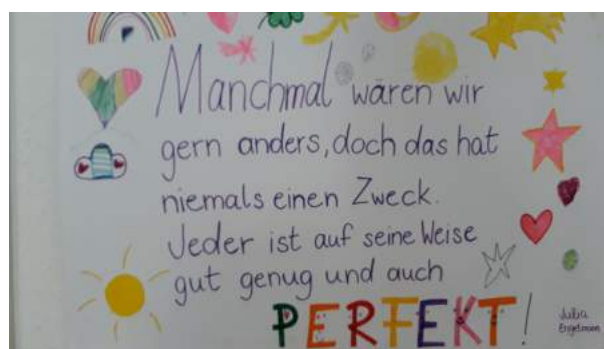 Manchmal wären wir
gern anders, doch das hat
niemals einen Zweck.
Jeder ist auf seine Weise
gut genug und auch
PERFEKT!
Julia
Engelmann